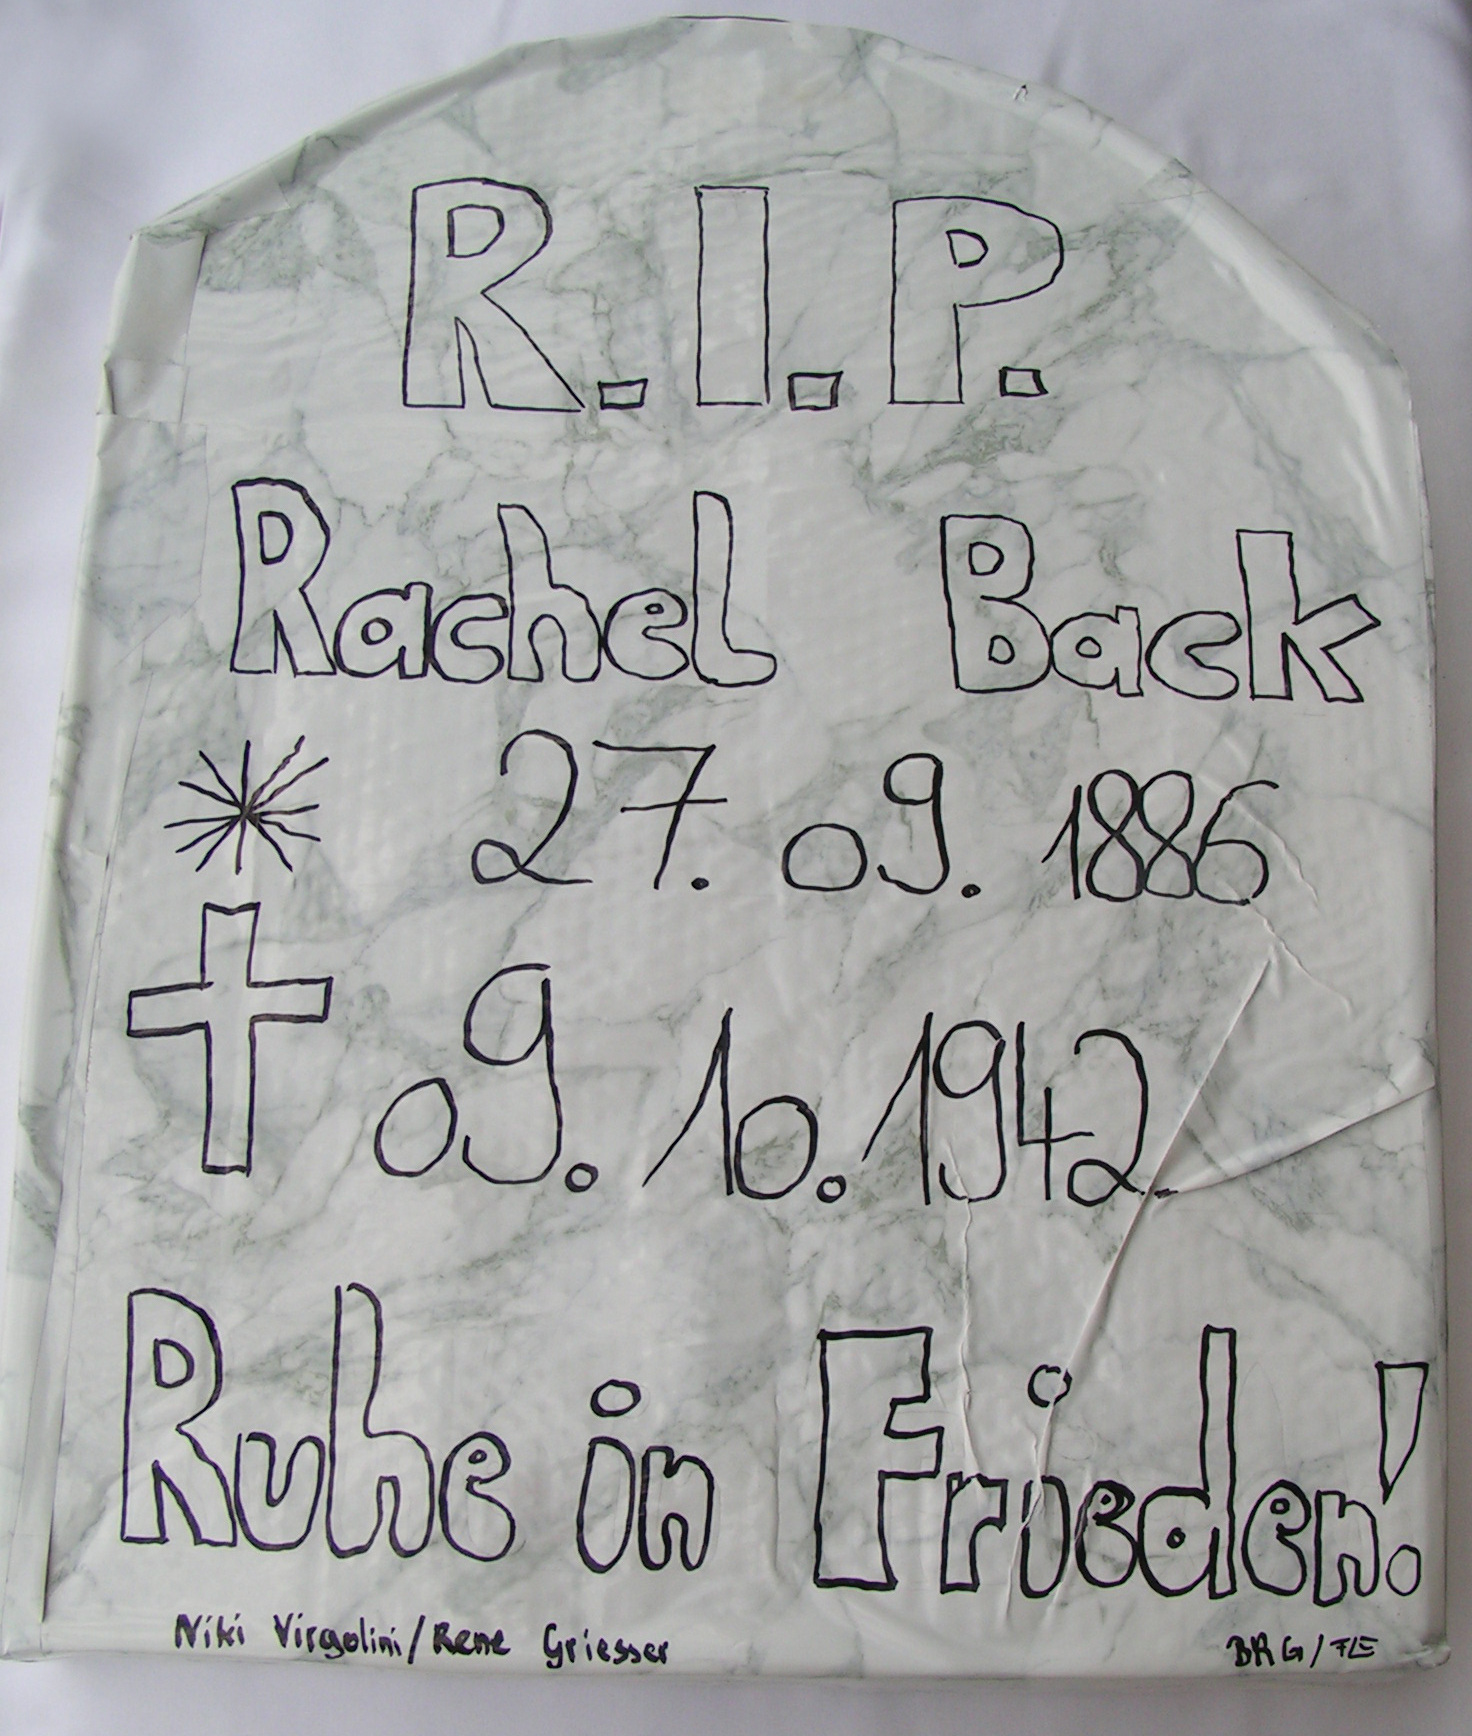 R.I.P.
Rachel Back
* 27. 09. 1886
† 09. 10. 1942
Ruhe in Frieden!
Niki Virgolini/Rene Griesser BRG/FLE